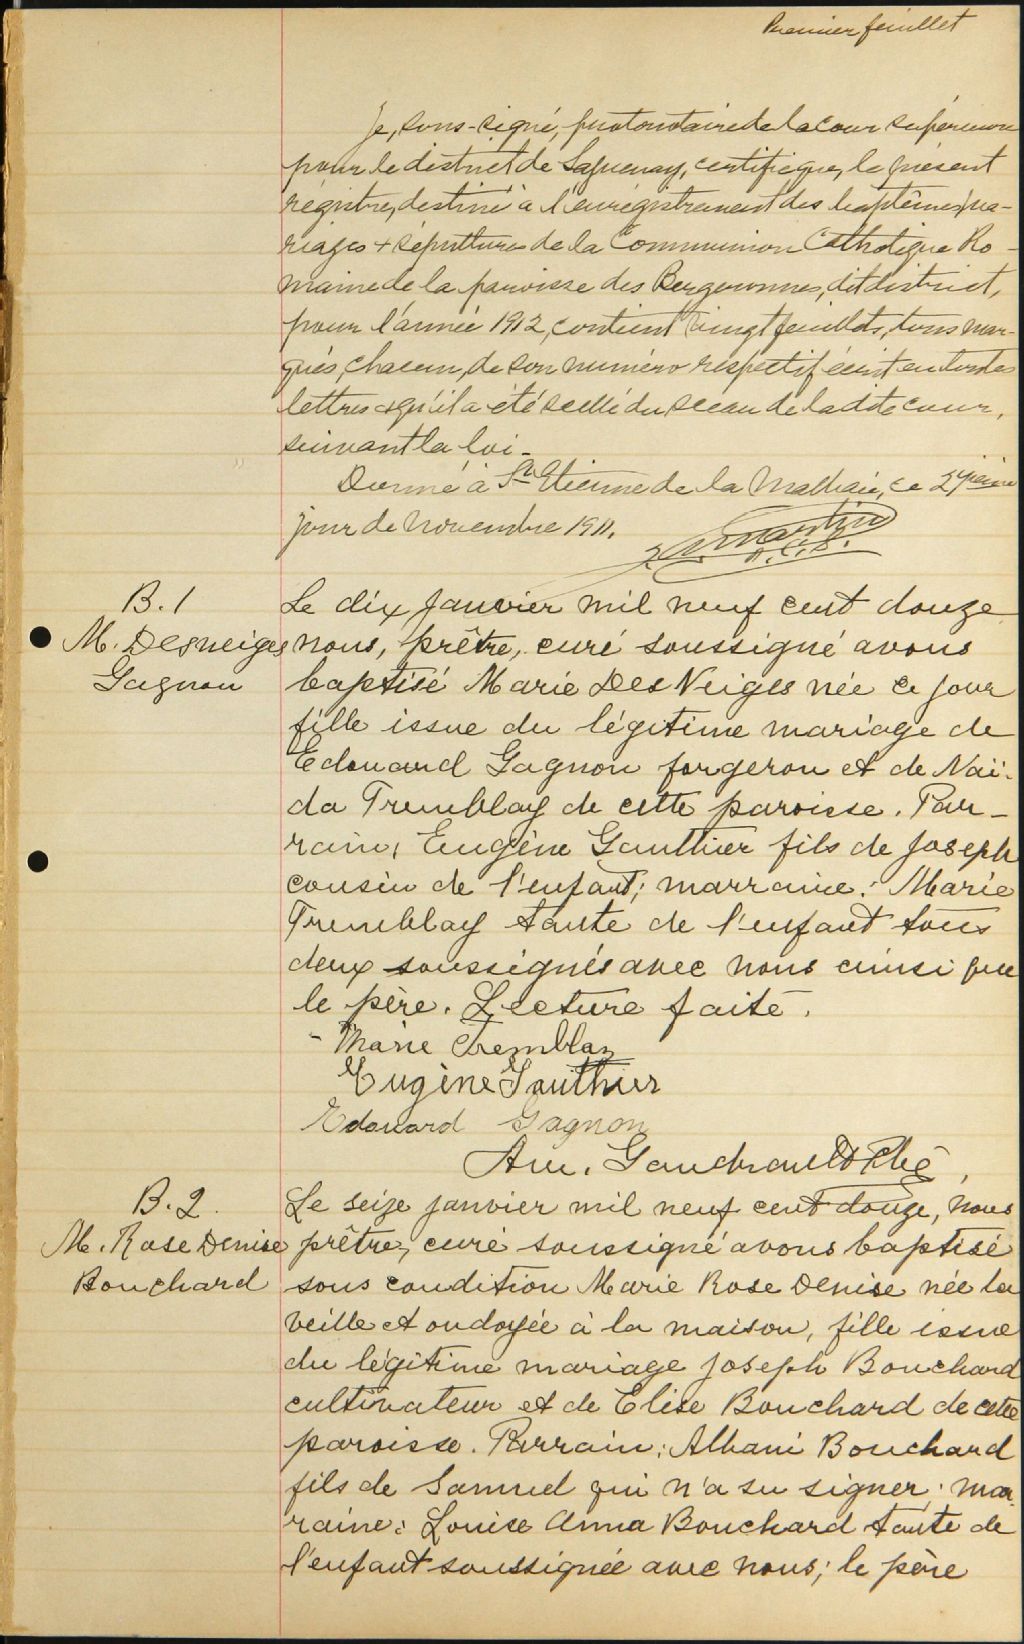 Premier feuillet
Je, sous-signé, protonotaire de la cour supérieure
pour le district de Saguenay, certifie que, le présent
régistre, destiné à l'enrégistrement des baptêmes, ma-
riages + sépultures de la Communion Catholique Ro-
maine de la paroisse des Bergeronnes, dit district,
pour l'année 1912, contient vingt feuillets, tous mar-
qués, chacun, de son numéro respectif écrit en toutes
lettres & qu'il a été scellé du sceau de la dite cour,
suivant la loi -
Donné à St Etienne de la Malbaie, ce
jour de novembre 1911.
B. 1
M. Desneiges
Gagnon
Le dix janvier mil neuf cent douze
nous, prêtre, curé soussigné avons
baptisé Marie Des Neiges née ce jour
fille issue du légitime mariage de
Edouard Gagnon forgeron et de Naï-
da Tremblay de cette paroisse. Par-
rain, Eugène Gauthier fils de Joseph
cousin de l'enfant; marraine: Marie
Tremblay tante de l'enfant tous
deux soussignés avec nous ainsi que
le père. Lecture faite.
Marie Tremblay
Eugène Gauthier
Edouard Gagnon
Gaudreault Ptre
B. 2.
M. Rose Denise
Bouchard
Le seize janvier mil neuf cent douze, nous
prêtre, curé soussigné avons baptisé
sous condition Marie Rose Denise née la
veille et ondoyée à la maison, fille issue
du légitime mariage Joseph Bouchard
cultivateur et de Elise Bouchard de cette
paroisse. Parrain: Albani Bouchard
fils de Samuel qui n'a su signer; mar-
raine: Louise Anna Bouchard tante de
l'enfant soussignée avec nous; le père